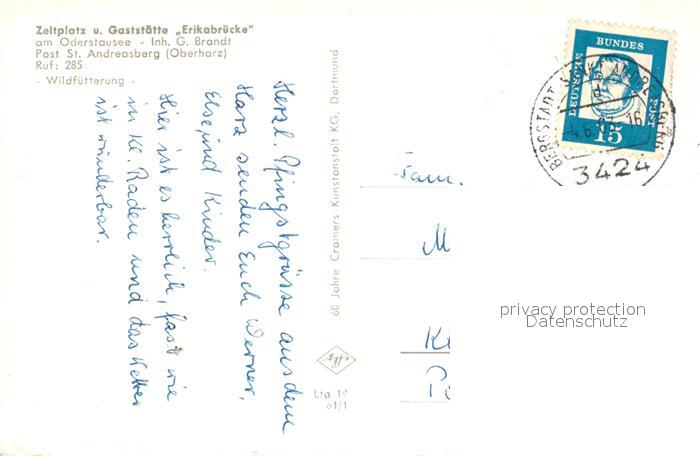 Zeltplatz u. Gaststätte „Erikabrücke“
am Oderstausee - Inh. G. Brandt
Post St. Andreasberg (Oberharz)
Ruf: 285
- Wildfütterung -
Herzl. Pfingstgrüsse aus dem
Harz senden Euch Werner,
Else, und Kinder.
Hier ist es herrlich, fast wie
in Kl. Raden und das Wetter
ist wunderbar.
60 Jahre Cramers Kunstanstalt KG, Dortmund
Lta 19
61/1
Fam.
M
Kl
DEUTSCHE
BUNDES
POST
15
BERGSTADT
4.6.
16
3424
privacy protection
Datenschutz